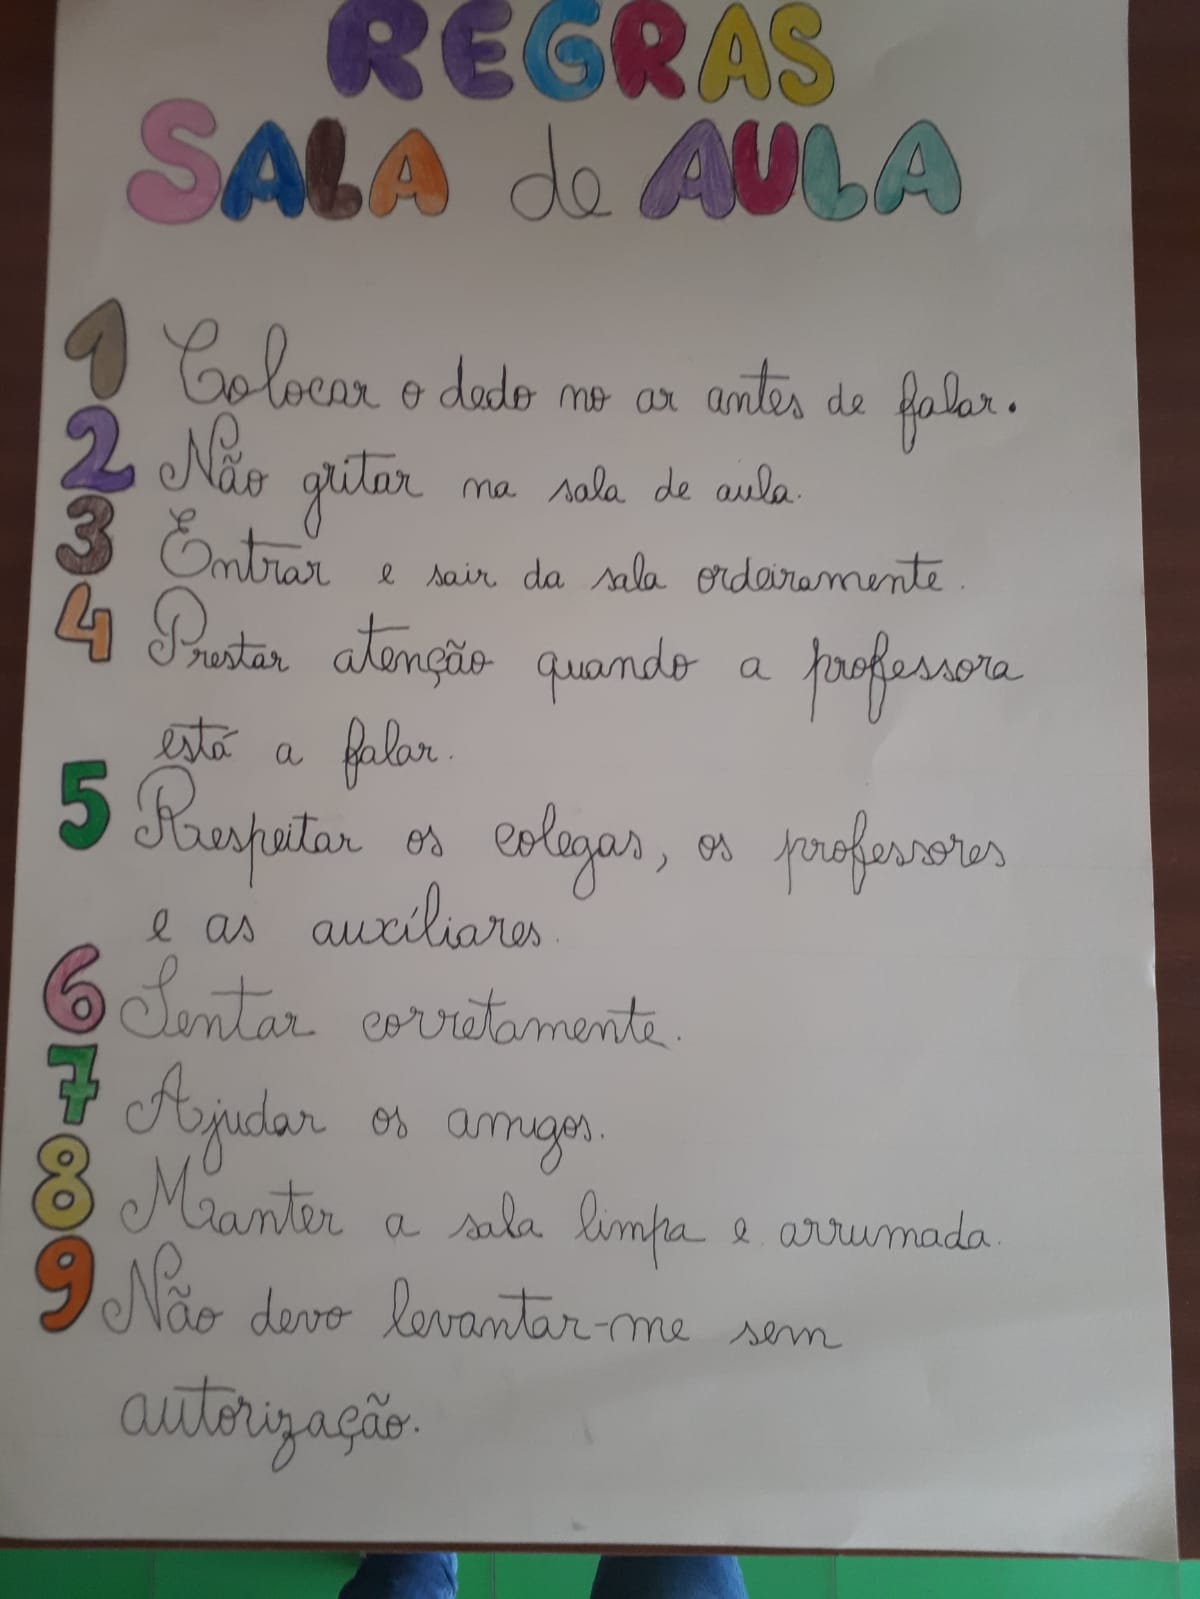 REGRAS
SALA de AULA
1 Colocar o dedo no ar antes de falar.
2 Não gritar na sala de aula.
3 Entrar e sair da sala ordeiramente.
4 Prestar atenção quando a professora
está a falar.
5 Respeitar os colegas, os professores
e as auxíliares.
6 Sentar corretamente.
7 Ajudar os amigos.
8 Manter a sala limpa e arrumada.
9 Não devo levantar-me sem
autorização.